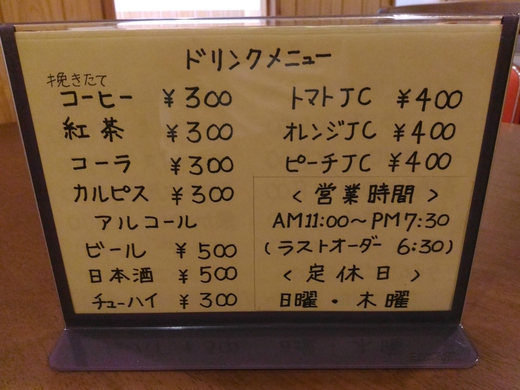 ドリンクメニュー
挽きたて
コーヒー ¥300
紅茶 ¥300
コーラ ¥300
カルピス ¥300
アルコール
ビール ¥500
日本酒 ¥500
チューハイ ¥300
トマトJC ¥400
オレンジJC ¥400
ピーチJC ¥400
〈営業時間〉
AM11:00〜PM7:30
(ラストオーダー 6:30)
〈定休日〉
日曜・木曜